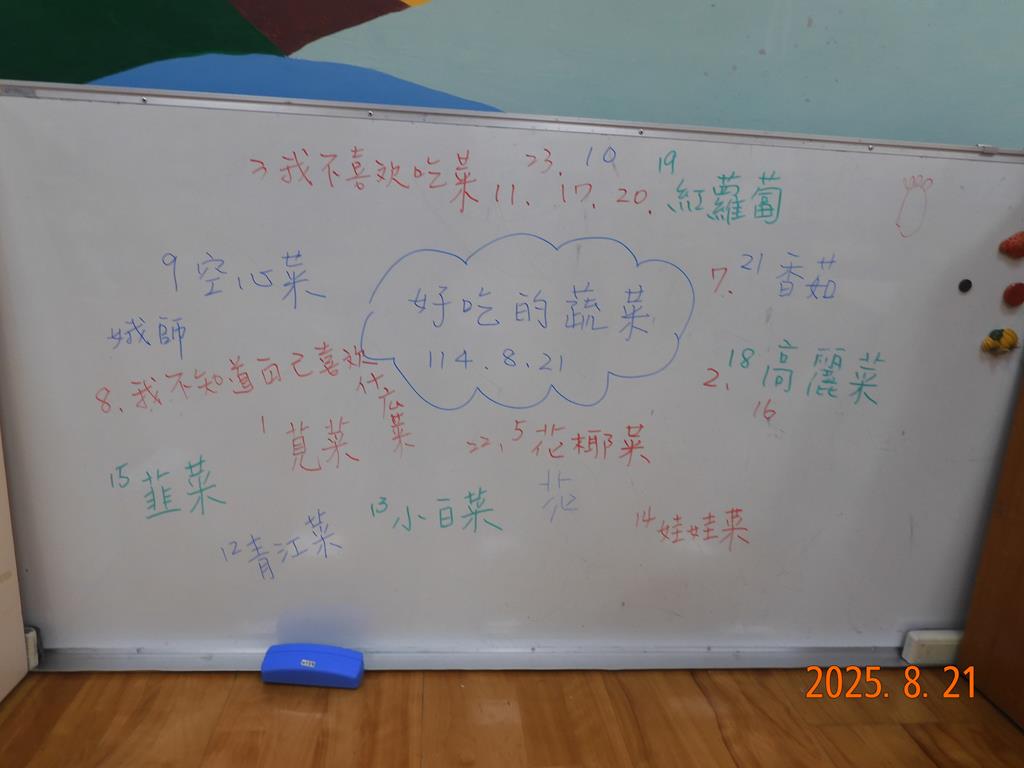 3 我不喜欢吃菜 23. 10
11. 17. 20. 19 紅蘿蔔
9 空心菜
好吃的蔬菜
114.8.21
7. 21 香茹
娥師
8. 我不知道自己喜欢
什広菜
2. 18 高麗菜
16
1 莧菜
22. 5 花椰菜
花
15 韮菜
13 小白菜
12 青江菜
14 娃娃菜
2025. 8. 21